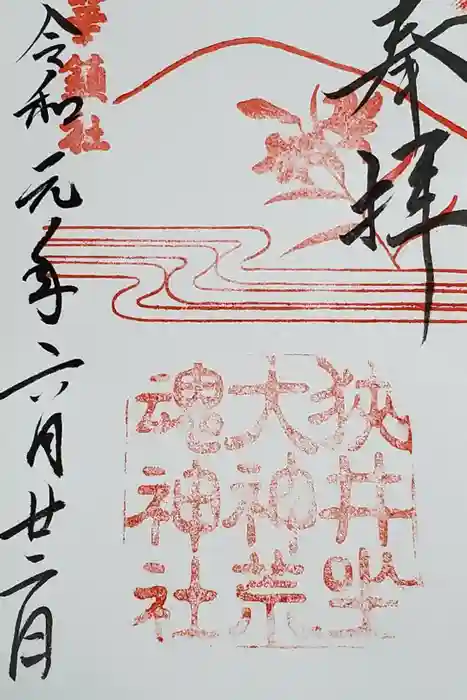 奉拝
狭井坐
大神荒
魂神社
華鎮社
令和元年六月廿二日